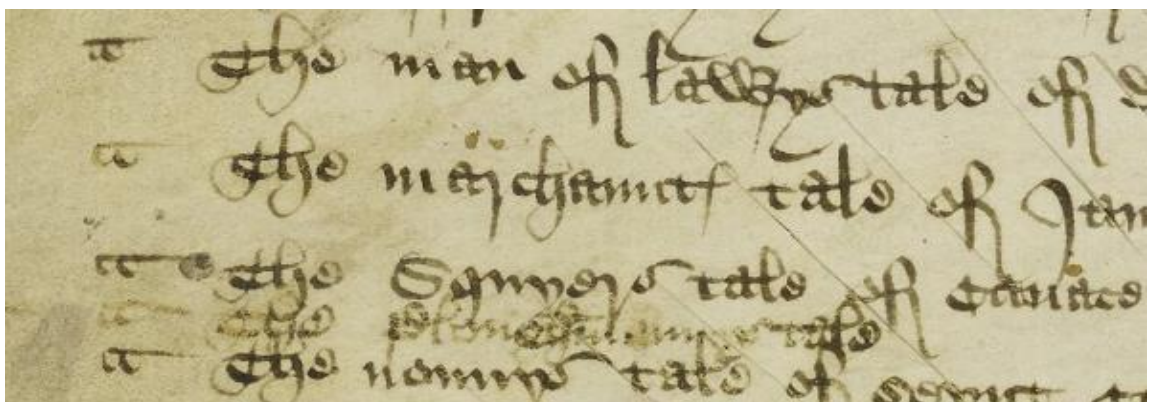 The man of lawys tale of
The marchant tale of
The Squyers tale of Canace
The tale
The nonnys tale of seynt